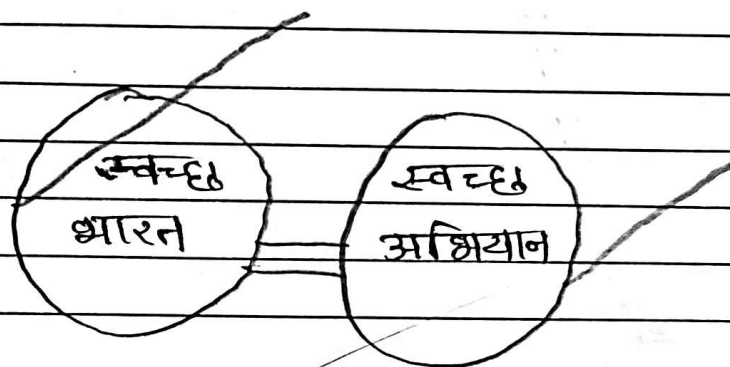 स्वच्छ
भारत
स्वच्छ
अभियान